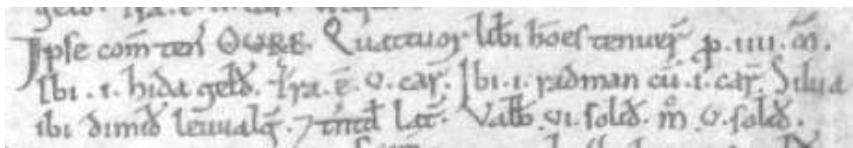 Ipse com̄ ten̄ OVRE. Quattuor lib̄i hōes tenuer̄ p̱ .iiii. m̄.
Ibi .i. hida geld̄. t̄ra .ē. v. car̄. Ibi .i. radman cū .i. car̄. Silua
ibi dimid̄ leuualḡ. ⁊ tn̄td̄ lat̄. Valb̄ .vi. solid̄. m̊ .v. solid̄.